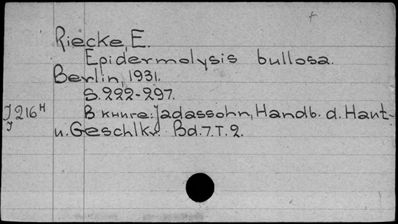 Riecke, E.
Epidermolysis bullosa.
Berlin, 1931.
S. 222-297.
J 216 H
J
В книге: Jadassohn, Handb. d. Haut-
u. Geschlkr. Bd. 7. T. 2.